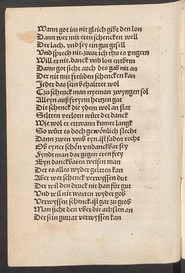 Wann got im nit gleich gibt den lon
Dann wer mit eren schencken well
Der lach, vnd sey ein gut gsell
Vnd sprech nit, zwar ich thu es vngern
Will er nit danck vnd lon entbern
Dann got sicht auch des gab nit an
Der nit mit freüden schencken kan
Jeder das sein behaltet wol
Zu schenck man nyeman zwyngen sol
Alleyn auß freyem hertzen gat
Die schenck die ydem wol an stat
Selten verloren würt der danck
Wie wol er etwann kumet langk
So würt es doch gewonlich schlecht
Dann zwen vmb eyn faden recht
Ob eyner schon vndanckbar sey
Fyndt man dar gegen eren frey
Eyn danckbaren weisen man
Der es alles wyder gelten kan
Aber wer schenck verwyssen dut
Der wil den druck nit han für gut
Vnd wil nit warten wyder gob
Verwyssen schenck ist gar zu grob
Man sicht den vber die achslen an
Der sein guttat verwyssen kan